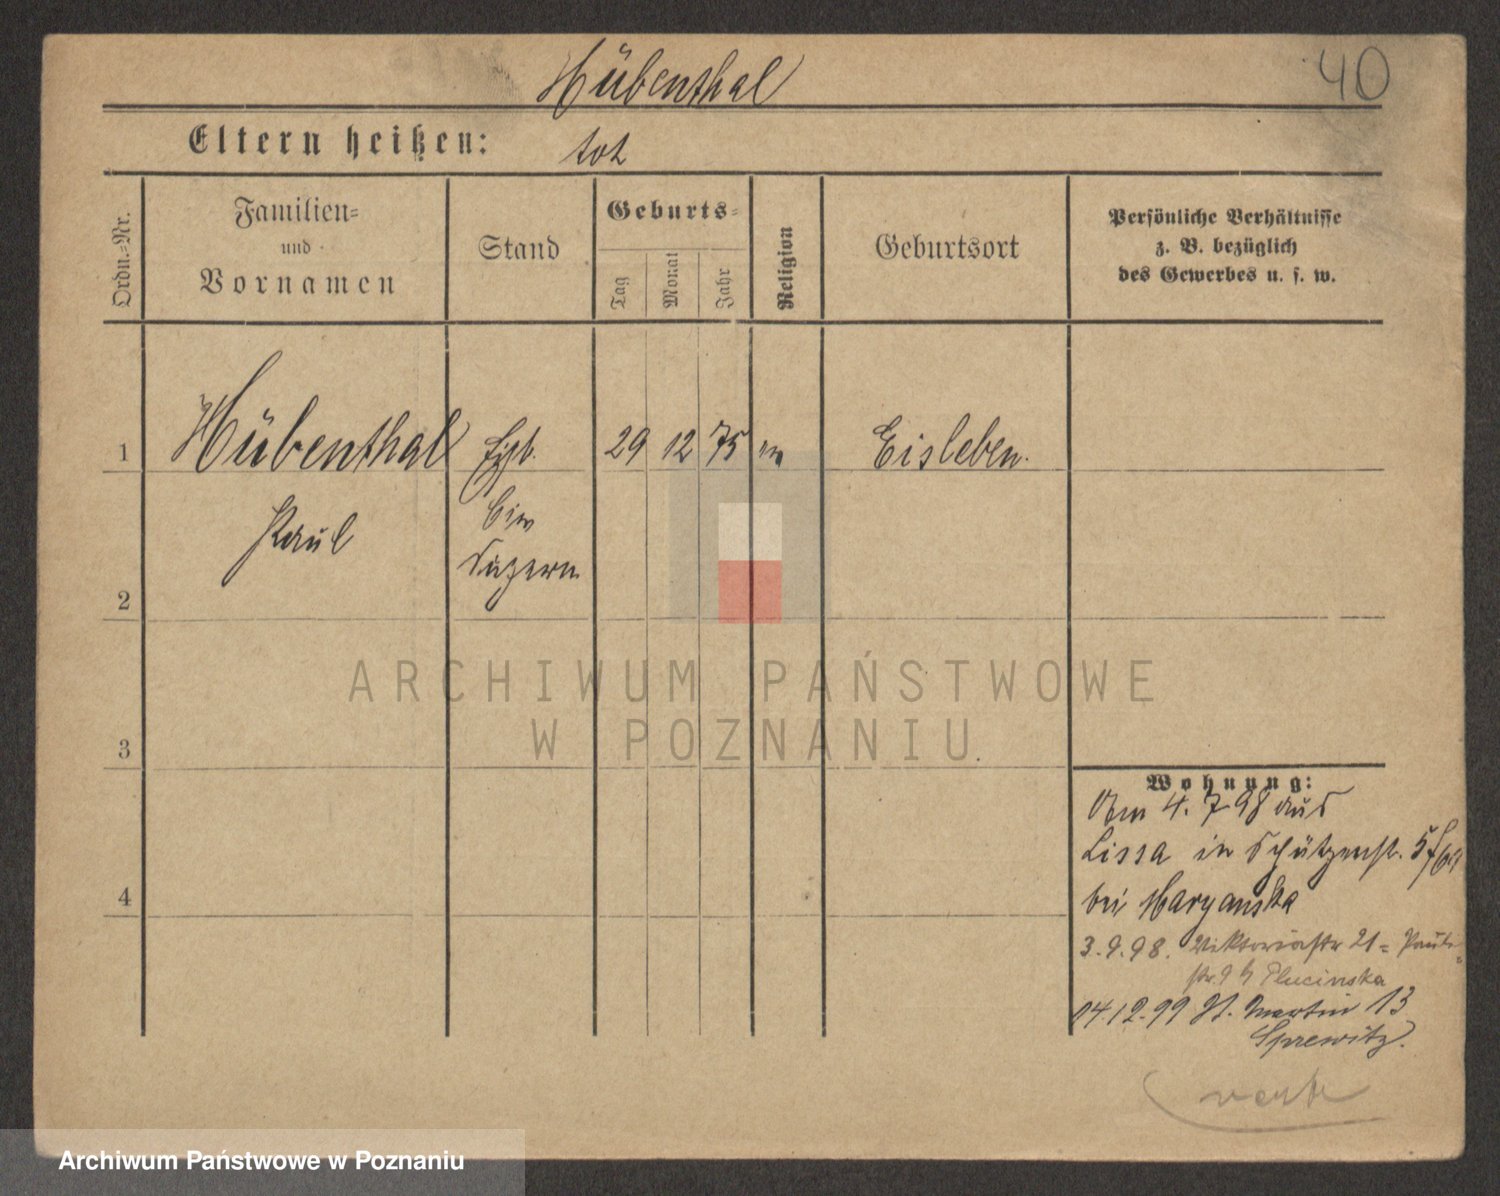 Hübenthal
40
Eltern heißen: tot
Ordn.-Nr.
Familien-
und
Vornamen
Stand
Geburts-
Tag
Monat
Jahr
Religion
Geburtsort
Persönliche Verhältnisse
z. B. bezüglich
des Gewerbes u. s. w.
1
Hübenthal
29 12 75
Eisleben.
Paul
2
3
4
ARCHIWUM PAŃSTWOWE
W POZNANIU
Wohnung:
Am 4. 7. 98 aus
Lissa in Schützenstr.
bei Maryanska
3. 9. 98. Viktoriastr 21
Plucinska
14.12.99 St. Martin 13
Sprewitz.
Archiwum Państwowe w Poznaniu